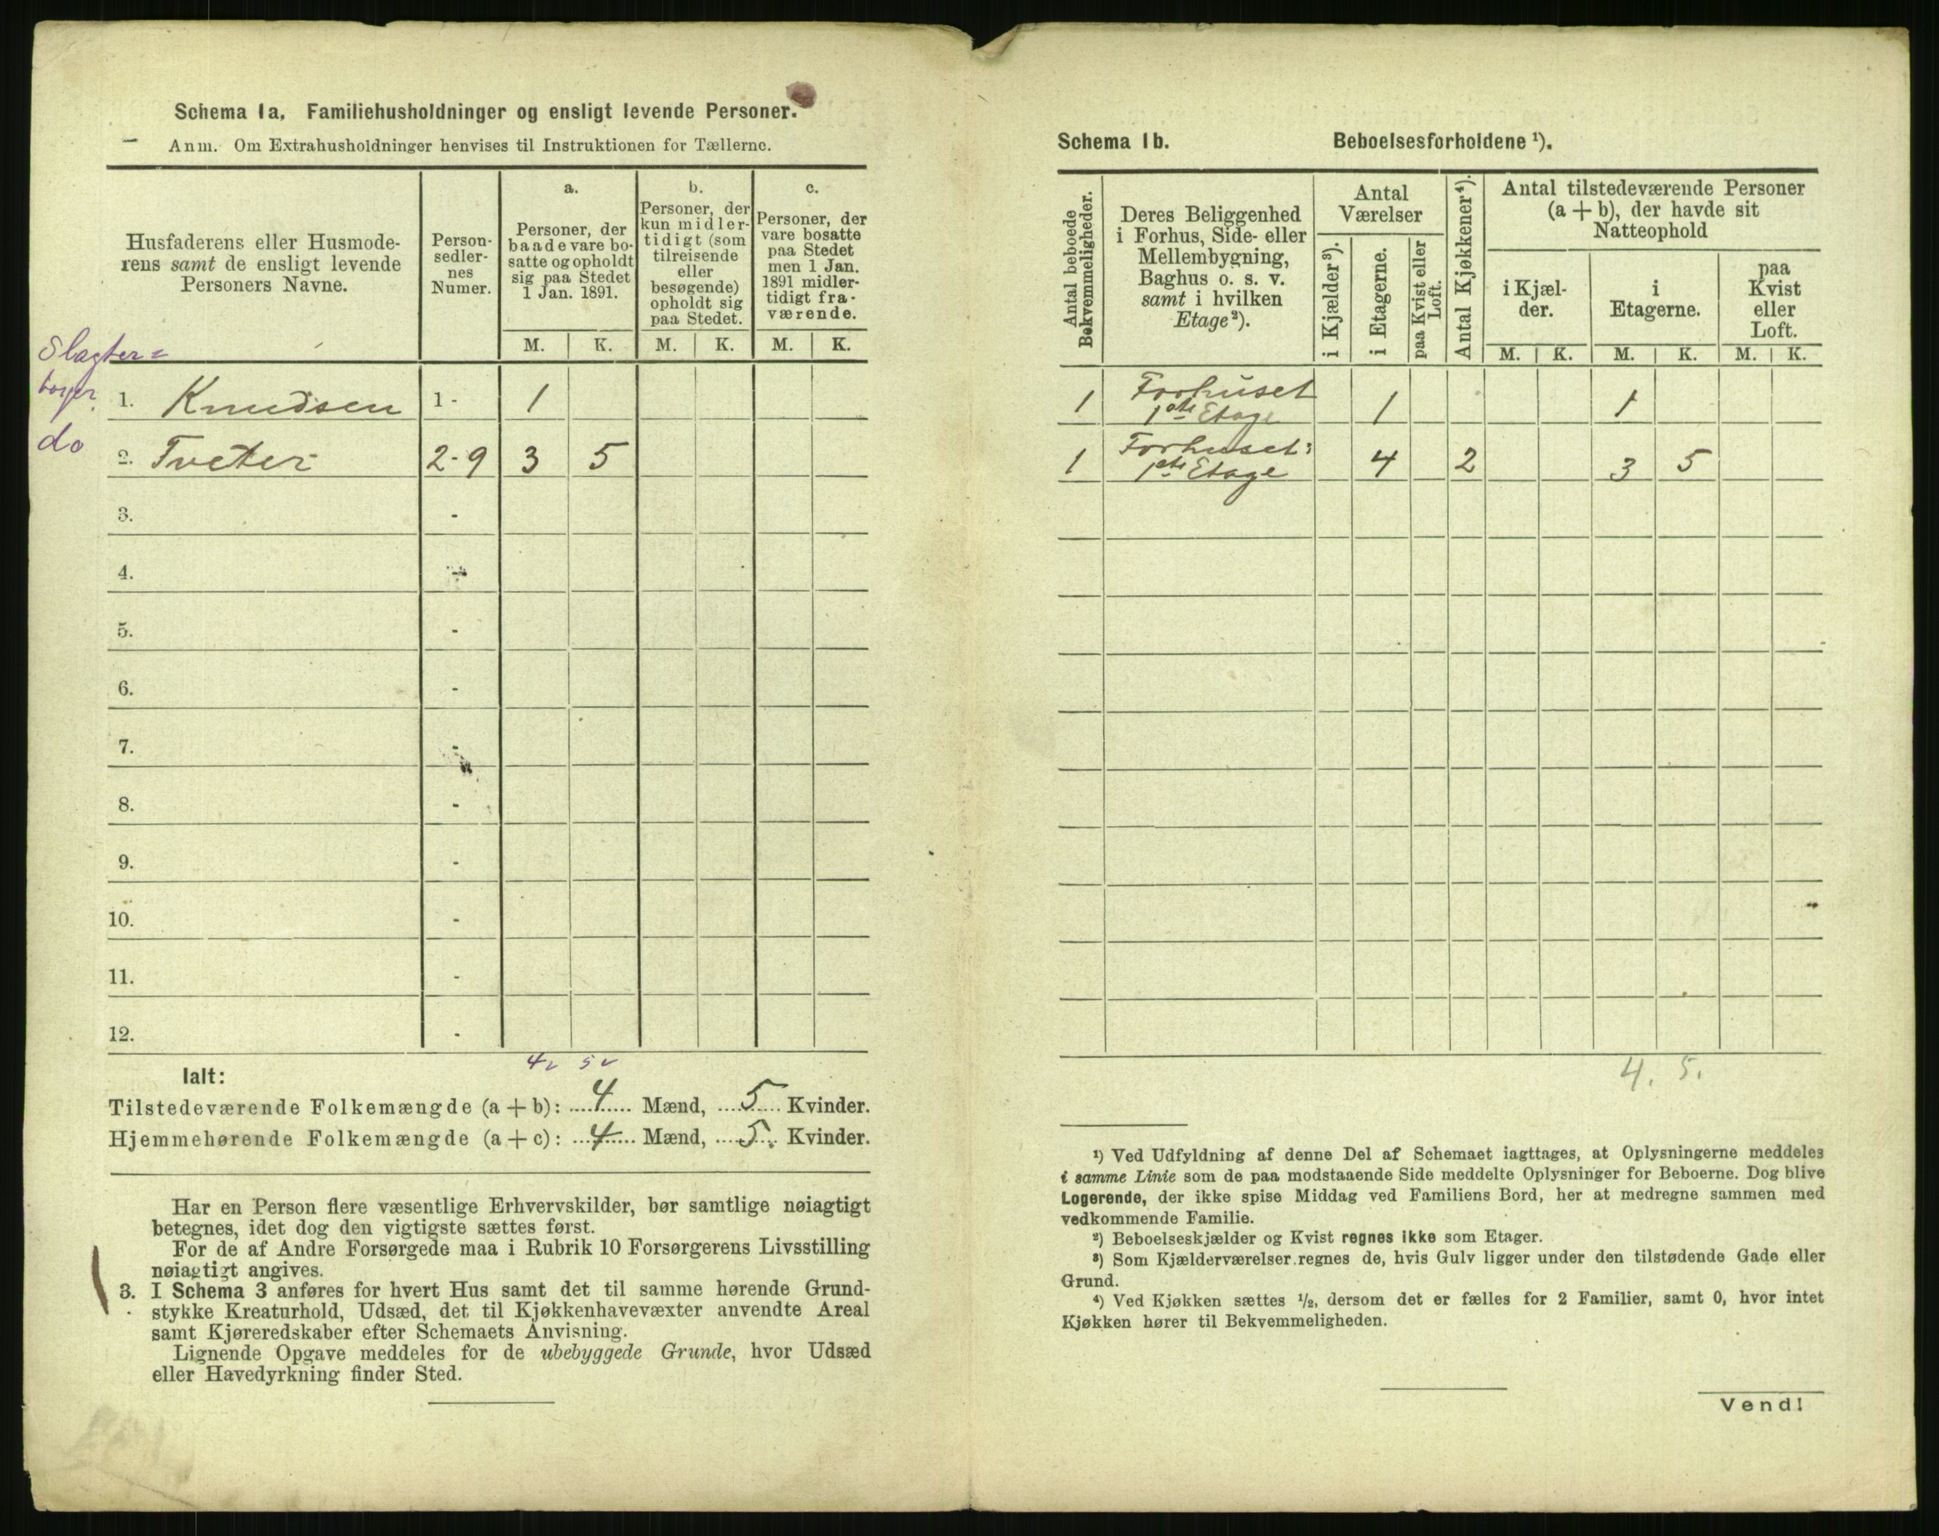 Schema 1a. Familiehusholdninger og ensligt levende Personer.
Anm. Om Extrahusholdninger henvises til Instruktionen for Tællerne.
Husfaderens eller Husmode-
rens samt de ensligt levende
Personers Navne.
Person-
sedler-
nes
Numer.
a.
Personer, der
baade vare bo-
satte og opholdt
sig paa Stedet
1 Jan. 1891.
b.
Personer, der
kun midler-
tidigt (som
tilreisende
eller
besøgende)
opholdt sig
paa Stedet.
c.
Personer, der
vare bosatte
paa Stedet
men 1 Jan.
1891 midler-
tidigt fra-
værende.
M. K. M. K. M. K.
Slagter=
1. Knudsen 1 - 1
do 2. Tveter 2-9 3 5
3. -
4. -
5. -
6. -
7. -
8. -
9. -
10. -
11. -
12. -
4 5
Ialt:
Tilstedeværende Folkemængde (a + b): 4 Mænd, 5 Kvinder.
Hjemmehørende Folkemængde (a + c): 4 Mænd, 5 Kvinder.
Har en Person flere væsentlige Erhvervskilder, bør samtlige nøiagtigt
betegnes, idet dog den vigtigste sættes først.
For de af Andre Forsørgede maa i Rubrik 10 Forsørgerens Livsstilling
nøiagtigt angives.
3. I Schema 3 anføres for hvert Hus samt det til samme hørende Grund-
stykke Kreaturhold, Udsæd, det til Kjøkkenhavevæxter anvendte Areal
samt Kjøreredskaber efter Schemaets Anvisning.
Lignende Opgave meddeles for de ubebyggede Grunde, hvor Udsæd
eller Havedyrkning finder Sted.
Schema 1b. Beboelsesforholdene ¹).
Antal beboede
Bekvemmeligheder.
Deres Beliggenhed
i Forhus, Side- eller
Mellembygning,
Baghus o. s. v.
samt i hvilken
Etage²).
Antal
Værelser
i Kjælder³).
i Etagerne.
paa Kvist eller
Loft.
Antal Kjøkkener⁴).
Antal tilstedeværende Personer
(a + b), der havde sit
Natteophold
i Kjæl-
der.
i
Etagerne.
paa
Kvist
eller
Loft.
M. K. M. K. M. K.
1 Forhuset 1 1
1ste Etage
1 Forhuset: 4 2 3 5
1ste Etage
4. 5.
¹) Ved Udfyldning af denne Del af Schemaet iagttages, at Oplysningerne meddeles
i samme Linie som de paa modstaaende Side meddelte Oplysninger for Beboerne. Dog blive
Logerende, der ikke spise Middag ved Familiens Bord, her at medregne sammen med
vedkommende Familie.
²) Beboelseskjælder og Kvist regnes ikke som Etager.
³) Som Kjælderværelser regnes de, hvis Gulv ligger under den tilstødende Gade eller
Grund.
⁴) Ved Kjøkken sættes ½, dersom det er fælles for 2 Familier, samt 0, hvor intet
Kjøkken hører til Bekvemmeligheden.
Vend!